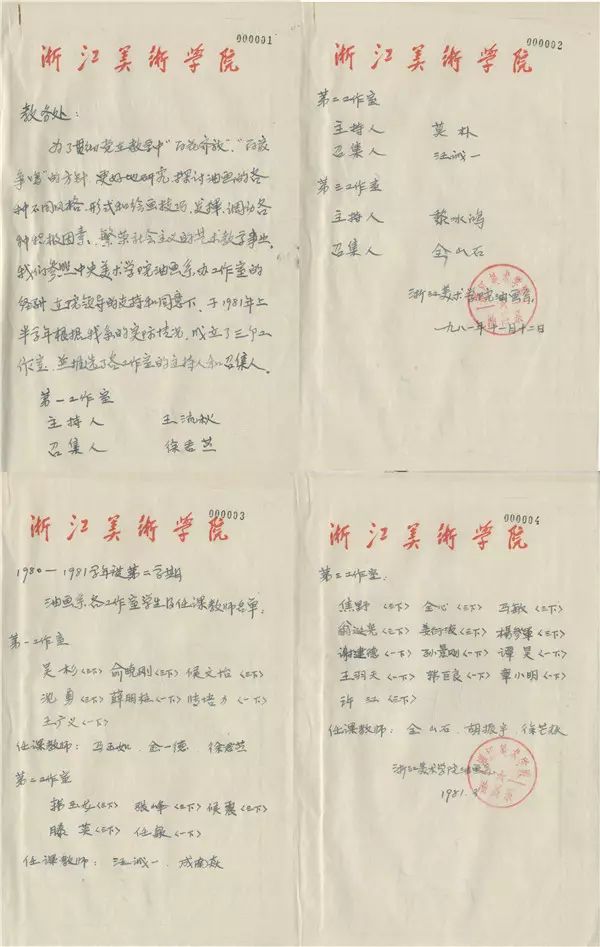 000001
浙江美術学院
教务处:
为了贯彻党在教学中"百花齐放","百家
争鸣"的方针,更好地研究、探讨油画的各
种不同风格、形式和绘画技巧,发挥、调动各
种积极因素、繁荣社会主义的艺术教学事业。
我们参照中央美术学院油画系办工作室的
经验,在院领导的支持和同意下,于1981年上
半学年根据我系的实际情况,成立了三个工
作室,并推选了各工作室的主持人和召集人。
第一工作室
主持人 王流秋
召集人 徐君萱
000002
浙江美術学院
第二工作室
主持人 莫朴
召集人 汪诚一
第三工作室
主持人 黎冰鸿
召集人 全山石
浙江美术学院油画系
一九八一年十一月十二日
000003
浙江美術学院
1980—1981学年度第二学期
油画系各工作室学生及任课教师名单:
第一工作室
吴杉<三下> 俞晓刚<三下> 侯文怡<三下>
沈勇<三下> 薛明桂<一下> 陈培力<一下>
王广义<一下>
任课教师: 马玉如、金一德、徐君萱
第二工作室
韩玉龙<三下> 张峰<三下> 侯震<三下>
滕英<三下> 任敏<一下>
任课教师: 汪诚一、成南炎
000004
浙江美術学院
第三工作室:
焦野<三下> 金心<三下> 马敏<三下>
翁诞宪<三下> 杨参军<三下>
谢建德<一下> 孙景刚<一下> 谭昊<一下>
王羽天<一下> 韩百良<一下> 章小明<一下>
许江<三下>
任课教师: 全山石、胡振宇、徐芒耀
浙江美术学院油画系
1981.